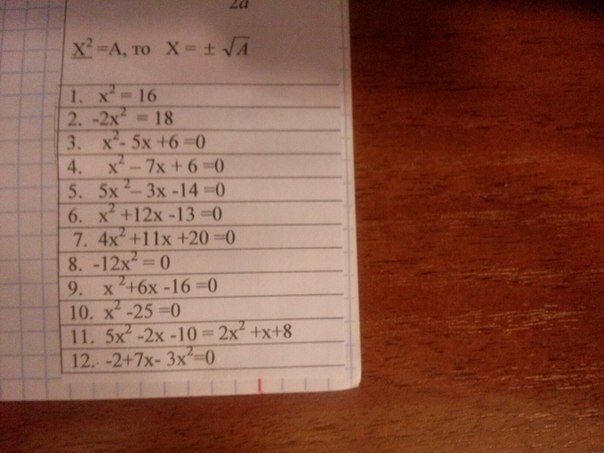 2a
X² =A, то X = ± √A
1. x² = 16
2. -2x² = 18
3. x²- 5x +6 =0
4. x² – 7x + 6 =0
5. 5x ²– 3x -14 =0
6. x² +12x -13 =0
7. 4x² +11x +20 =0
8. -12x² = 0
9. x ²+6x -16 =0
10. x² -25 =0
11. 5x² -2x -10 = 2x² +x+8
12. -2+7x- 3x²=0